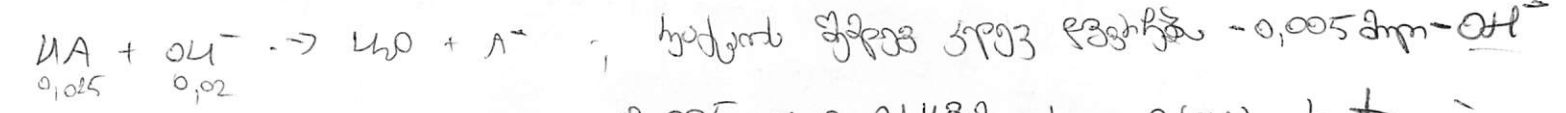 HA + OH⁻ → H₂O + A⁻ ; რეაქციის შემდეგ კიდევ დაგვრჩება - 0,005 მოლ - OH⁻
0,025 0,02